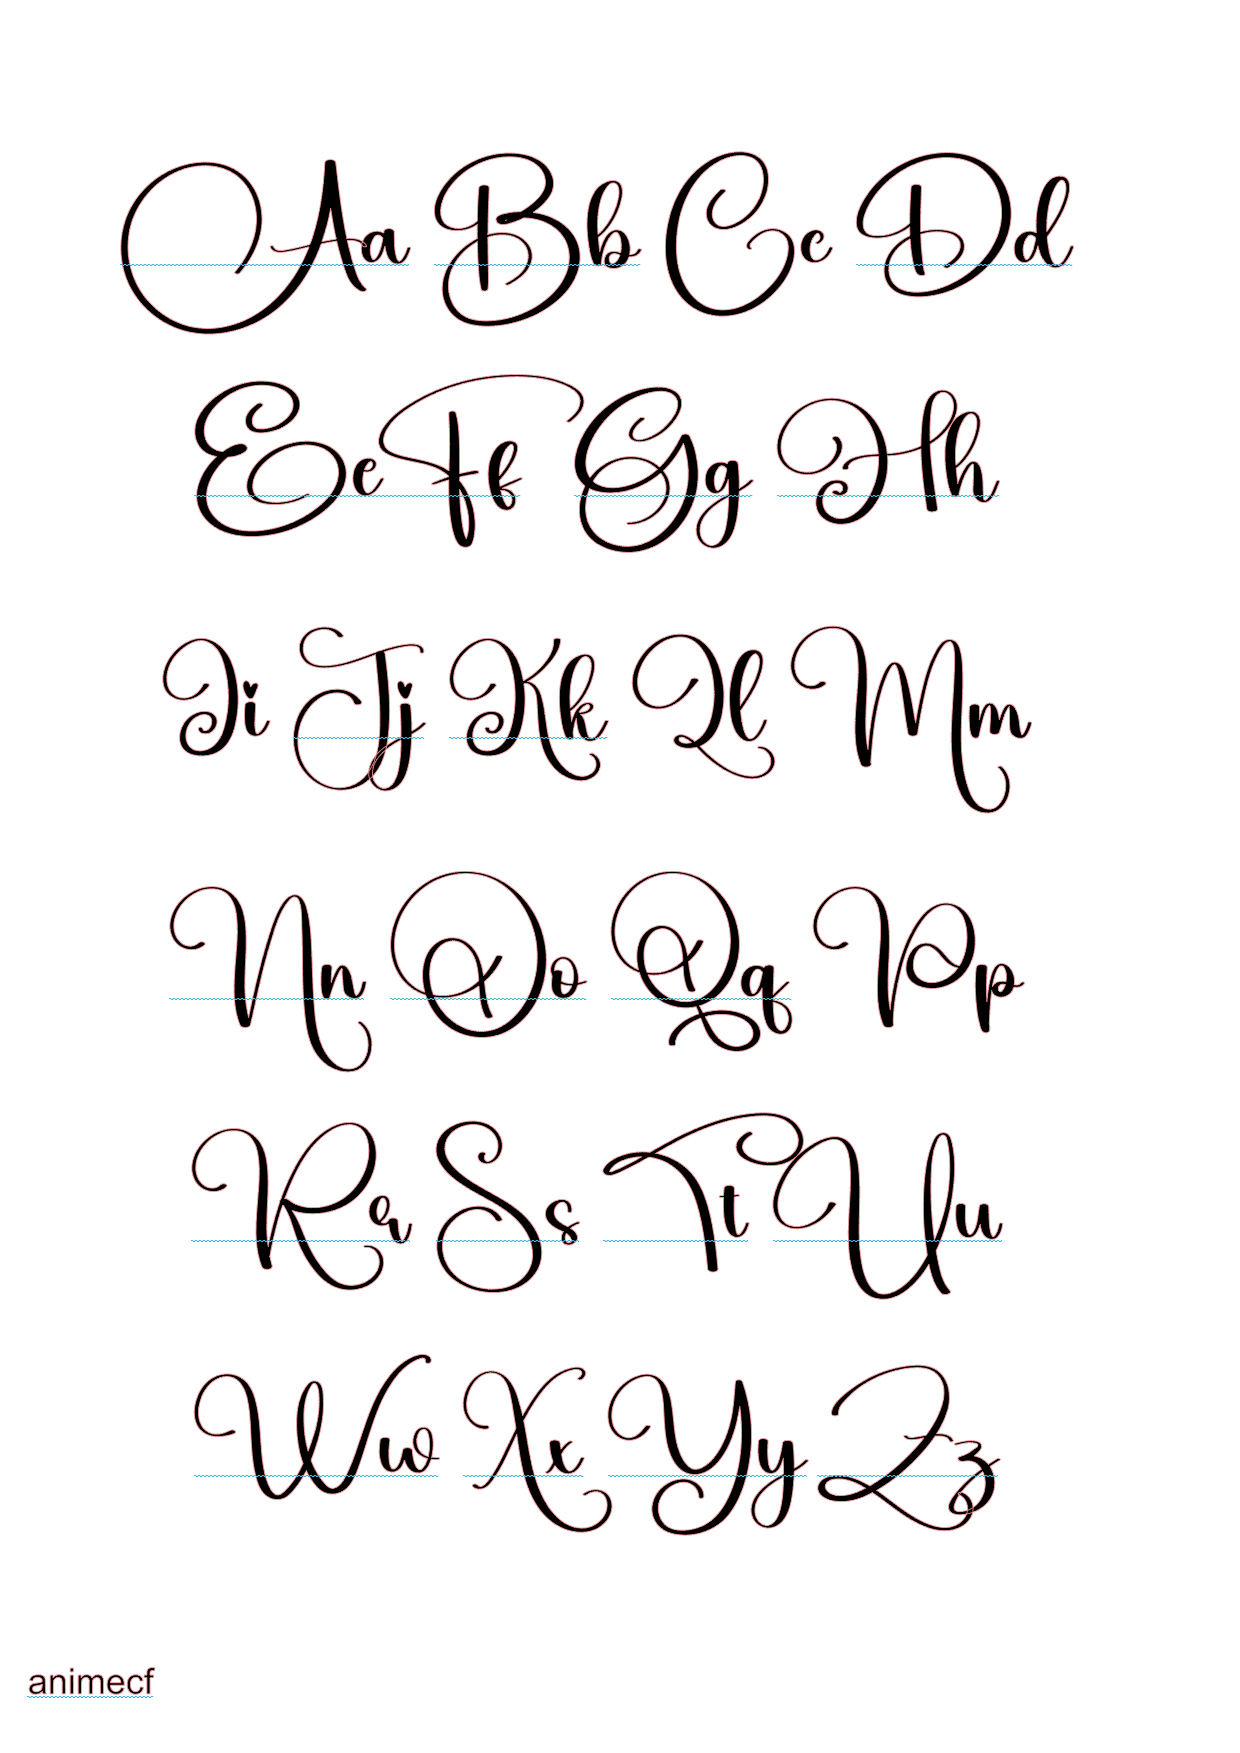 Aa Bb Cc Dd
Ee Ff Gg Hh
Ii Jj Kk Ll Mm
Nn Oo Qq Pp
Rr Ss Tt Uu
Ww Xx Yy Zz
animecf